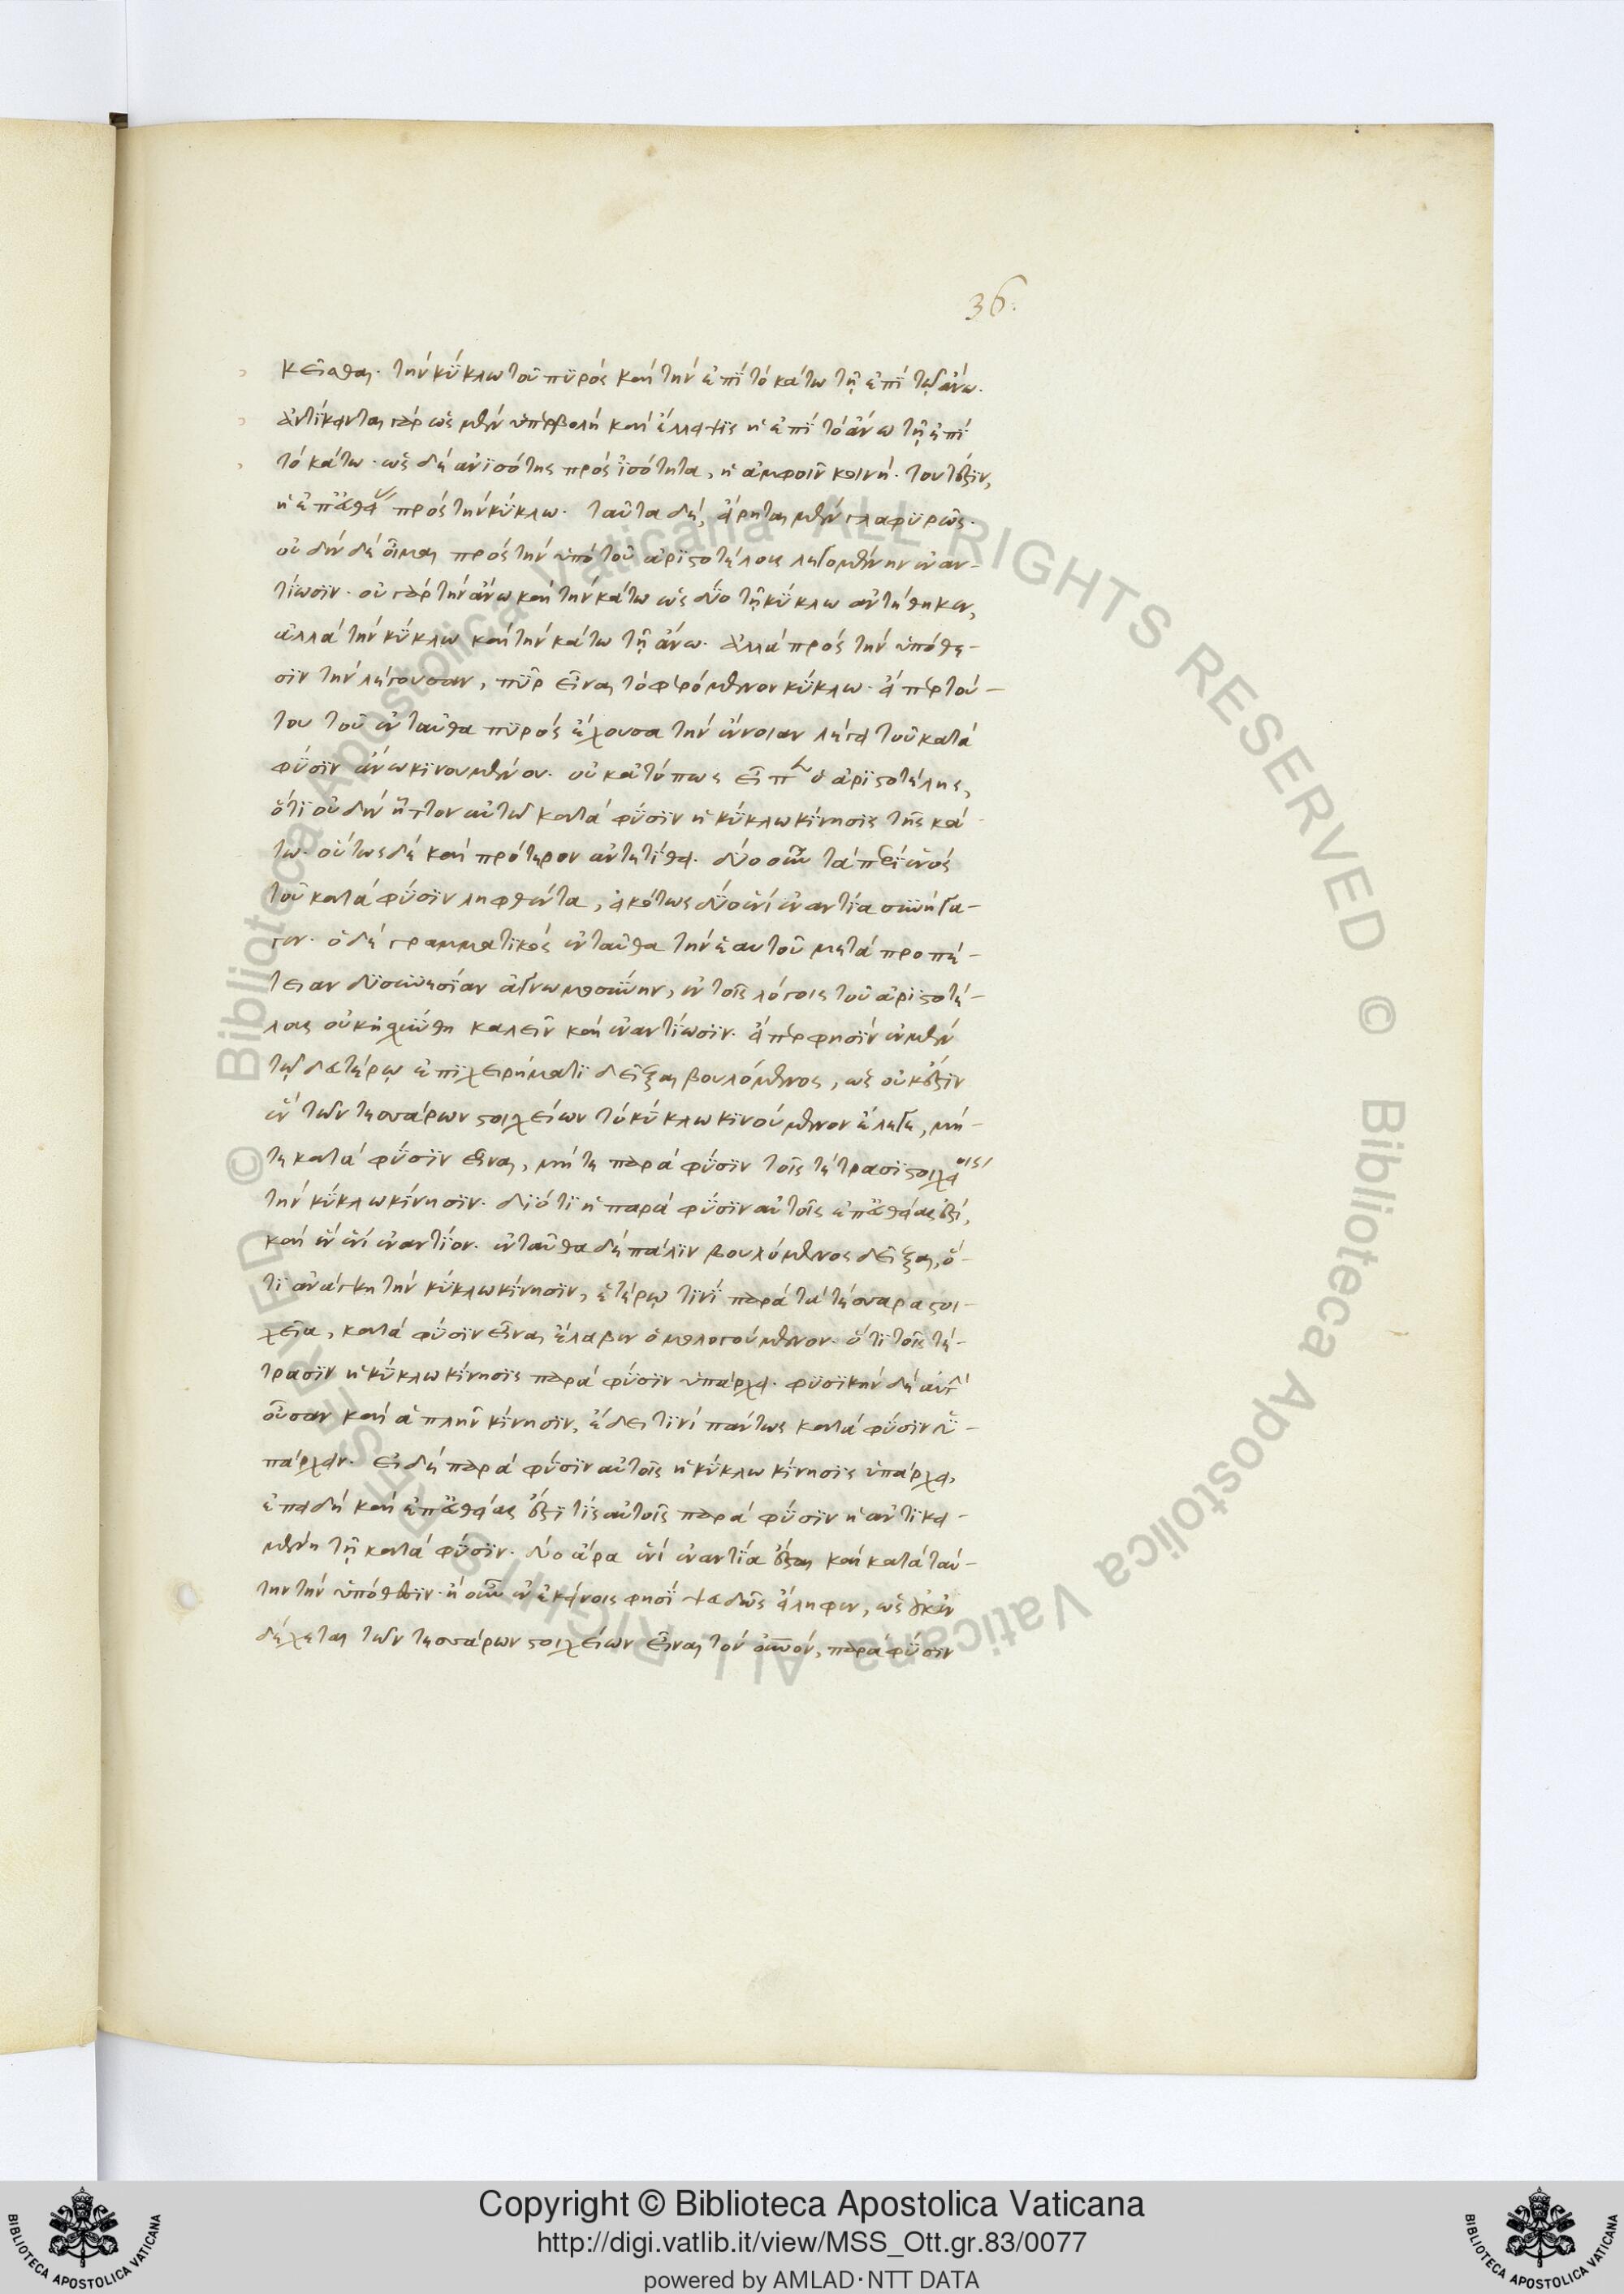 36.
κεῖσθαι. τὴν κύκλω τοῦ πϋρὸς καὶ τὴν ἐπὶ τὸ κάτω τῆ ἐπὶ τῷ ἄνω.
ἀντίκειται γὰρ ὡς μὲν ὑπερβολὴ καὶ ἔλλειψις ἡ ἐπὶ τὸ ἄνω τῆ ἐπὶ
τὸ κάτω. ὡς δὲ ἀνϊσότης πρὸς ϊσότητα, ἡ ἀμφοῖν κοινὴ. τουτέστϊν,
ἡ ἐπ' εὐθείας πρὸς τὴν κύκλω. ταῦτα δὲ, εἴρηται μὲν γλαφϋρῶς.
οὐδὲν δὲ οἶμαι πρὸς τὴν ὑπὸ τοῦ ἀρϊστοτέλους λεγομένην ἐναν-
τίωσϊν. οὐ γὰρ τὴν ἄνω καὶ τὴν κάτω ὡς δύο τῆ κύκλω ἀντέθηκεν,
ἀλλὰ τὴν κύκλω καὶ τὴν κάτω τῆ ἄνω. ἀλλὰ πρὸς τὴν ὑπόθε-
σϊν τὴν λέγουσαν, πῦρ εἶναι τὸ φερόμενον κύκλω. εἴπερ τού-
του τοῦ ἐνταῦθα πϋρὸς ἔχουσα τὴν ἔννοιαν λέγει τοῦ κατὰ
φύσϊν ἄνω κϊνουμένου. οὐκ ἀτόπως εἶπεν ὁ ἀρϊστοτέλης,
ὅτϊ οὐδὲν ἧττον αὐτῶ κατὰ φύσϊν ἡ κύκλω κίνησϊς τῆς κά-
τω. οὕτως δὲ καὶ πρότερον ἀντετίθει. δύο οὖν τὰ περὶ ἑνὸς
τοῦ κατὰ φύσϊν ληφθέντα, εἰκότως δύο ἑνὶ ἐναντία συνήγα-
γεν. ὁ δὲ γραμματϊκὸς ἐνταῦθα τὴν ἑαυτοῦ μετὰ προπέ-
τειαν δϋσσϋνεσίαν ἀγνωμοσύνην, ἐν τοῖς λόγοις τοῦ ἀρϊστοτέ-
λους οὐκ ἠσχύνθη καλεῖν καὶ ἐναντίωσϊν. εἴπερ φησὶν ἐν μὲν
τῷ δευτέρῳ ἐπϊχειρήματϊ δεῖξαι βουλόμενος, ὡς οὐκ ἔστϊν
ἓν τῶν τεσσάρων στοιχείων τὸ κύκλω κϊνούμενον ἔλεγε, μή-
τε κατὰ φύσϊν εἶναι, μήτε παρὰ φύσϊν τοῖς τέτρασϊ στοιχείοις
τὴν κύκλω κίνησϊν. δϊότϊ ἡ παρὰ φύσϊν αὐτοῖς ἐπ' εὐθείας ἐστὶ,
καὶ ἓν ἑνὶ ἐναντίον. ἐνταῦθα δὲ πάλϊν βουλόμενος δεῖξαι, ὅ-
τϊ ἀνάγκη τὴν κύκλω κίνησϊν, ἑτέρῳ τϊνὶ παρὰ τὰ τέσσαρα στοι-
χεῖα, κατὰ φύσϊν εἶναι ἔλαβεν ὁμολογούμενον. ὅτϊ τοῖς τέ-
τρασϊν ἡ κύκλω κίνησϊς παρὰ φύσϊν ὑπάρχει. φϋσϊκὴν δὲ αὐτὴν
οὖσαν καὶ ἁπλῆν κίνησϊν, ἔδει τϊνὶ πάντως κατὰ φύσϊν ὑ-
πάρχειν. εἰ δὲ παρὰ φύσϊν αὐτοῖς ἡ κύκλω κίνησϊς ὑπάρχει,
ἐπειδὴ καὶ ἐπ' εὐθείας ἔστϊ τὶς αὐτοῖς παρὰ φύσϊν ἡ ἀντϊκει-
μένη τῆ κατὰ φύσϊν. δύο ἄρα ἑνὶ ἐναντία ἔσται καὶ κατὰ ταύ-
την τὴν ὑπόθεσϊν. ἢ οὖν ἐν ἐκείνοις φησὶ ψευδῶς εἴληφεν, ὡς οὐκ ἐν
δέχεται τῶν τεσσάρων στοιχείων εἶναι τὸν οὐρανὸν, παρὰ φύσϊν
Copyright © Biblioteca Apostolica Vaticana
http://digi.vatlib.it/view/MSS_Ott.gr.83/0077
powered by AMLAD·NTT DATA